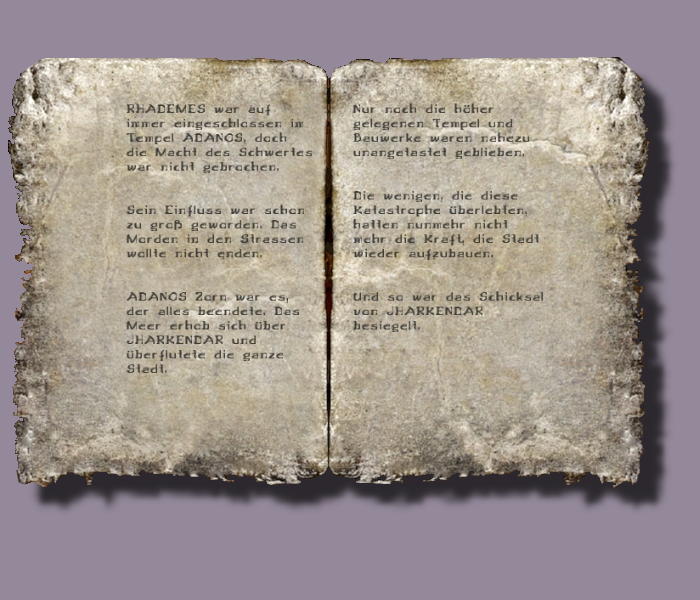 RHADEMES war auf
immer eingeschlossen im
Tempel ADANOS, doch
die Macht des Schwertes
war nicht gebrochen.
Sein Einfluss war schon
zu groß geworden. Das
Morden in den Strassen
wollte nicht enden.
ADANOS Zorn war es,
der alles beendete. Das
Meer erhob sich über
JHARKENDAR und
überflutete die ganze
Stadt.
Nur noch die höher
gelegenen Tempel und
Bauwerke waren nahezu
unangetastet geblieben.
Die wenigen, die diese
Katastrophe überlebten,
hatten nunmehr nicht
mehr die Kraft, die Stadt
wieder aufzubauen.
Und so war das Schicksal
von JHARKENDAR
besiegelt.